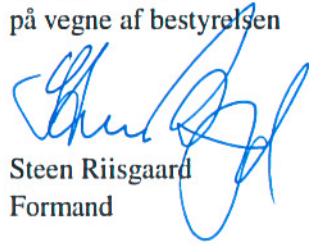 på vegne af bestyrelsen
Steen Riisgaard
Formand